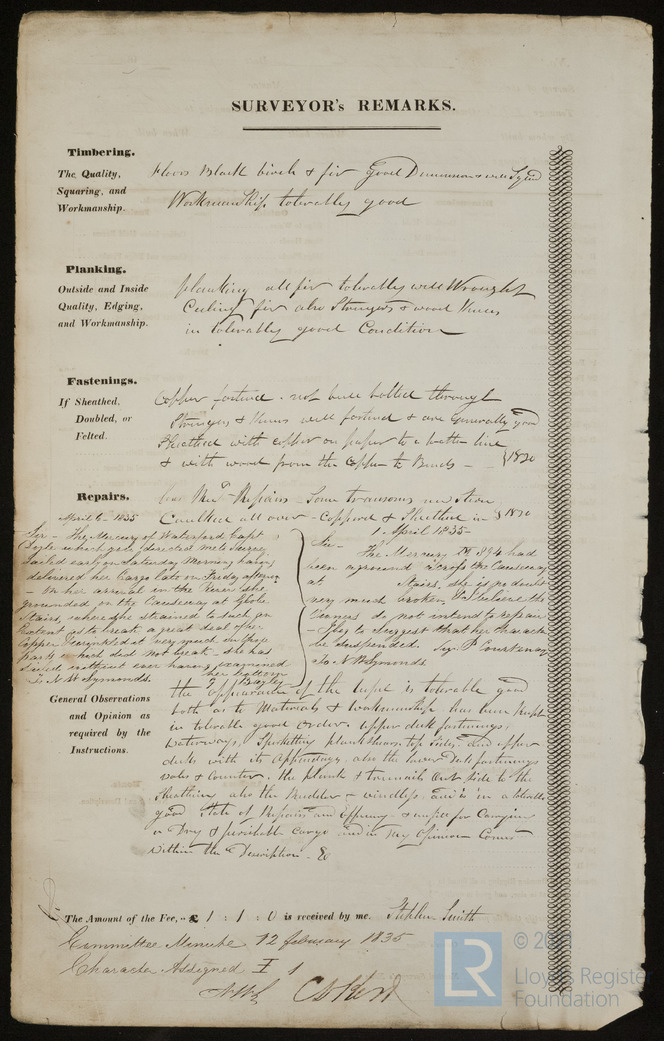 SURVEYOR's REMARKS.
Timbering.
The Quality,
Squaring, and
Workmanship.
Floors Black birch & fir Good Dimensions & well Sqrd
Workmanship tolerably good
Planking.
Outside and Inside
Quality, Edging,
and Workmanship.
planking all fir tolerably well Wrought
Ceiling fir also Stringers & wood Knees
in tolerably good Condition
Fastenings.
If Sheathed,
Doubled, or
Felted.
Copper fastened, not butt bolted through
Stringers & Knees well fastend & are generally good
Sheathed with copper on paper to a batten line
& with wood from the Copper to Bends - 1830
Repairs.
Repairs - Some transoms
Caulked all over - Coppered & Sheathed in 1830
April 6 - 1835
Sir - The Mercury of Waterford Capt
Doyle which you directed me to Survey
Sailed early on Saturday Morning having
delivered her Cargo late on Friday afternoon
- On her arrival in the River she
grounded on the Causeway at Globe
Stairs, where she strained to such an
Extent as to break a great deal of her
Copper & very much on those
parts which did not break - she has
Sailed without ever having examined
her bottom
To N W Symonds.
1. April 1835
Sir -
The Mercury No 894 had
been aground across the Causeway
at Stairs, she is no doubt
very much broken, & I believe the
Owners do not intend to repair
- I beg to Suggest that her Character
be Suspended. Sign P Courtenay
To. N W Symonds.
General Observations
and Opinion as
required by the
Instructions.
The appearance of the hull is tolerable good
both as to Materials & Workmanship has been kept
in tolerable good order. upper deck fastenings,
Waterways, Spirketting plansheers, top Sides, and upper
deck with its Appendages, also the lower deck fastenings
wales & Counter, the plank & treenails out side to the
Sheathing also the Rudder & windlass, and is in a tolerable
good State of Repairs and Efficiency - & in for Carrying
a Dry & perishable Cargo and in my Opinion Comes
within the Description - &
The Amount of the Fee, £ 1 : 1 : 0 is received by me. Stephen Smith
Committee Minute 12 February 1835
Character Assigned Æ 1
NWS
LR
© 20
Lloyd's Register
Foundation